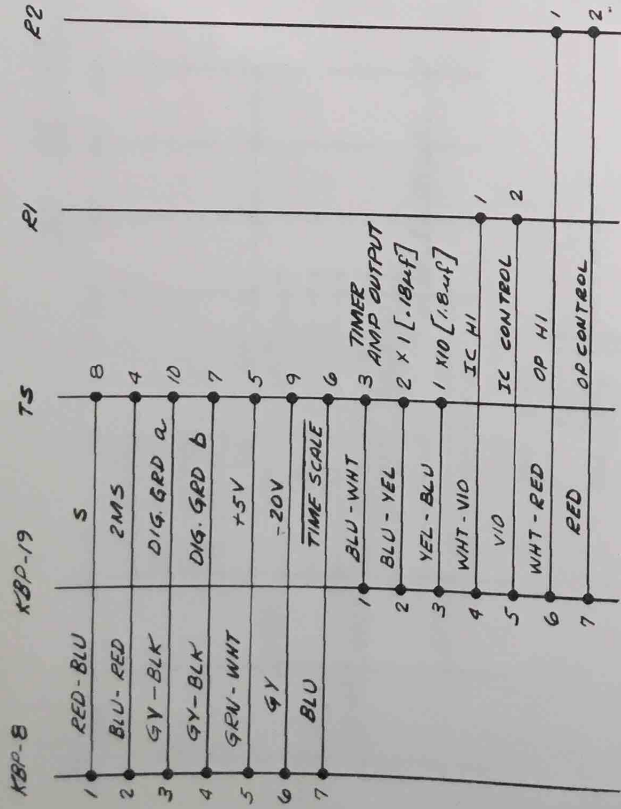 KBP-8 KBP-19 TS R1 R2
1 RED-BLU S 8
2 BLU-RED 2MS 4
3 GY-BLK DIG. GRD a 10
4 GY-BLK DIG. GRD b 7
5 GRN-WHT +5V 5
6 GY -20V 9
7 BLU TIME SCALE 6
1 BLU-WHT 3 TIMER
AMP OUTPUT
2 BLU-YEL 2 X1 [.18µf]
3 YEL-BLU 1 X10 [1.8µf]
4 WHT-VIO IC HI 1
5 VIO IC CONTROL 2
6 WHT-RED OP HI 1
7 RED OP CONTROL 2